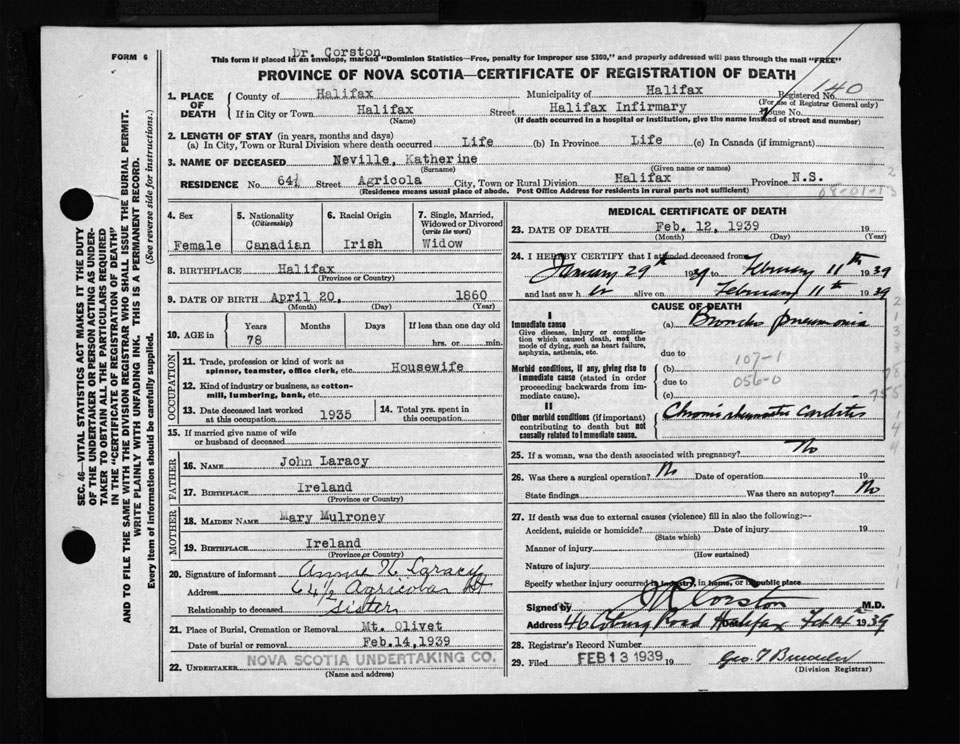 Dr. Corston
FORM 6
This form if placed in an envelope, marked "Dominion Statistics—Free, penalty for improper use $300," and properly addressed will pass through the mail "FREE"
PROVINCE OF NOVA SCOTIA—CERTIFICATE OF REGISTRATION OF DEATH
140
1. PLACE OF DEATH County of Halifax Municipality of Halifax Registered No.
(For use of Registrar General only)
If in City or Town Halifax Street Halifax Infirmary House No.
(Name) (If death occurred in a hospital or institution, give the name instead of street and number)
2. LENGTH OF STAY (in years, months and days)
(a) In City, Town or Rural Division where death occurred Life (b) In Province Life (c) In Canada (if immigrant)
3. NAME OF DECEASED Neville, Katherine
(Surname) (Given name or names)
RESIDENCE No. 64½ Street Agricola City, Town or Rural Division Halifax Province N.S.
(Residence means usual place of abode. Post Office Address for residents in rural parts not sufficient)
08-01-13
4. Sex
Female
5. Nationality
(Citizenship)
Canadian
6. Racial Origin
Irish
7. Single, Married, Widowed or Divorced
(write the word)
Widow
8. BIRTHPLACE Halifax
(Province or Country)
9. DATE OF BIRTH April 20, 1860
(Month) (Day) (Year)
10. AGE in Years Months Days If less than one day old
78 hrs. or min.
OCCUPATION
11. Trade, profession or kind of work as
spinner, teamster, office clerk, etc. Housewife
12. Kind of industry or business, as cotton-
mill, lumbering, bank, etc.
13. Date deceased last worked
at this occupation 1935
14. Total yrs. spent in
this occupation
15. If married give name of wife
or husband of deceased
FATHER
16. NAME John Laracy
17. BIRTHPLACE Ireland
(Province or Country)
MOTHER
18. MAIDEN NAME Mary Mulroney
19. BIRTHPLACE Ireland
(Province or Country)
20. Signature of informant Annie K Laracy
Address 64½ Agricola St
Relationship to deceased Sister
21. Place of Burial, Cremation or Removal Mt. Olivet
Date of burial or removal Feb.14,1939
22. UNDERTAKER NOVA SCOTIA UNDERTAKING CO.
(Name and address)
MEDICAL CERTIFICATE OF DEATH
23. DATE OF DEATH Feb. 12, 1939 19
(Month) (Day) (Year)
24. I HEREBY CERTIFY that I attended deceased from
January 29th 1939 to February 11th 1939
and last saw her alive on February 11th 1939
CAUSE OF DEATH
I
Immediate cause
Give disease, injury or complica-
tion which caused death, not the
mode of dying, such as heart failure,
asphyxia, asthenia, etc.
(a) Broncho pneumonia
due to
Morbid conditions, if any, giving rise to
immediate cause (stated in order
proceeding backwards from im-
mediate cause).
(b) 107-1
due to 056-0
(c)
II
Other morbid conditions (if important)
contributing to death but not
causally related to immediate cause.
Chronic rheumatic carditis
25. If a woman, was the death associated with pregnancy? No
26. Was there a surgical operation? No Date of operation 19
State findings Was there an autopsy? No
27. If death was due to external causes (violence) fill in also the following:—
Accident, suicide or homicide? Date of injury 19
(State which)
Manner of injury
(How sustained)
Nature of injury
Specify whether injury occurred in industry, in home, or in public place
Signed by Corston M.D.
Address 46 Coburg Road Halifax Feb 12th 1939
28. Registrar's Record Number
29. Filed FEB 13 1939 19
(Division Registrar)
SEC. 46—VITAL STATISTICS ACT MAKES IT THE DUTY
OF THE UNDERTAKER OR PERSON ACTING AS UNDER-
TAKER TO OBTAIN ALL THE PARTICULARS REQUIRED
IN THE "CERTIFICATE OF REGISTRATION OF DEATH"
AND TO FILE THE SAME WITH THE DIVISION REGISTRAR WHO SHALL ISSUE THE BURIAL PERMIT.
WRITE PLAINLY WITH UNFADING INK. THIS IS A PERMANENT RECORD.
Every item of information should be carefully supplied. (See reverse side for instructions.)